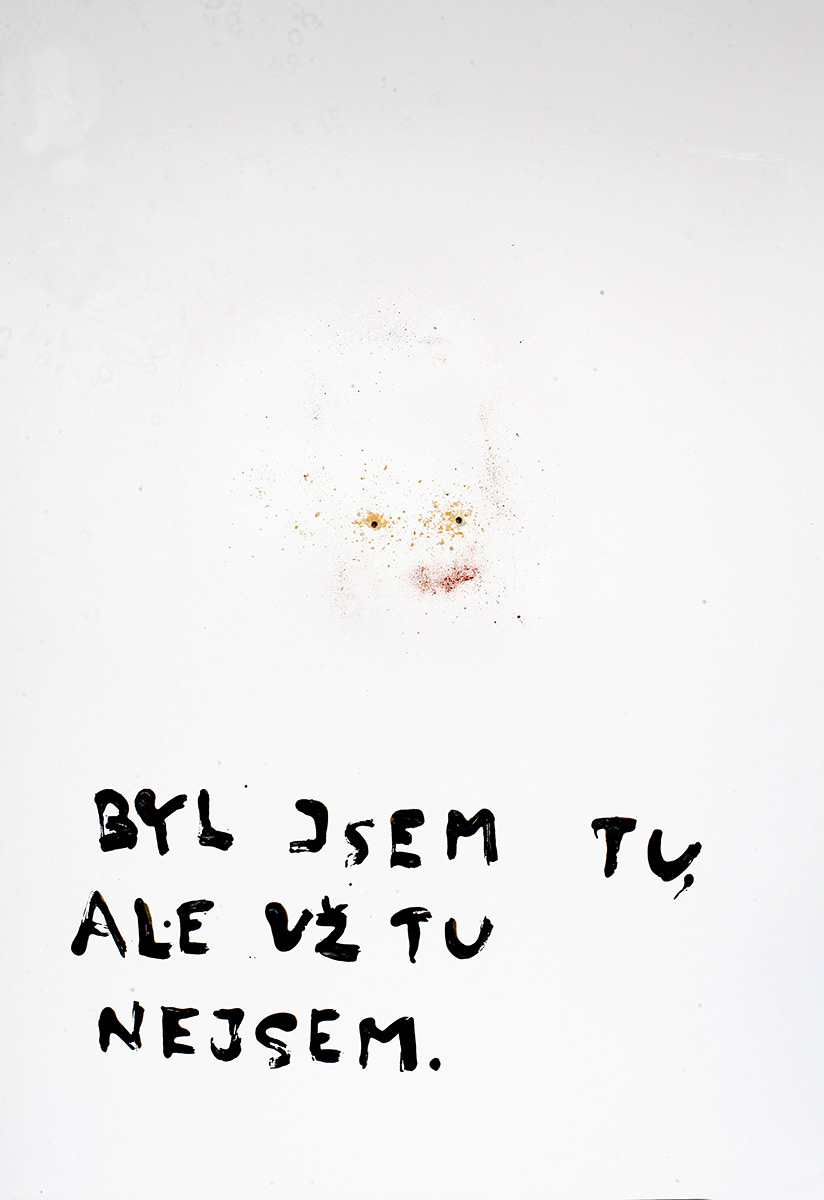 BYL JSEM TU,
ALE UŽ TU
NEJSEM.